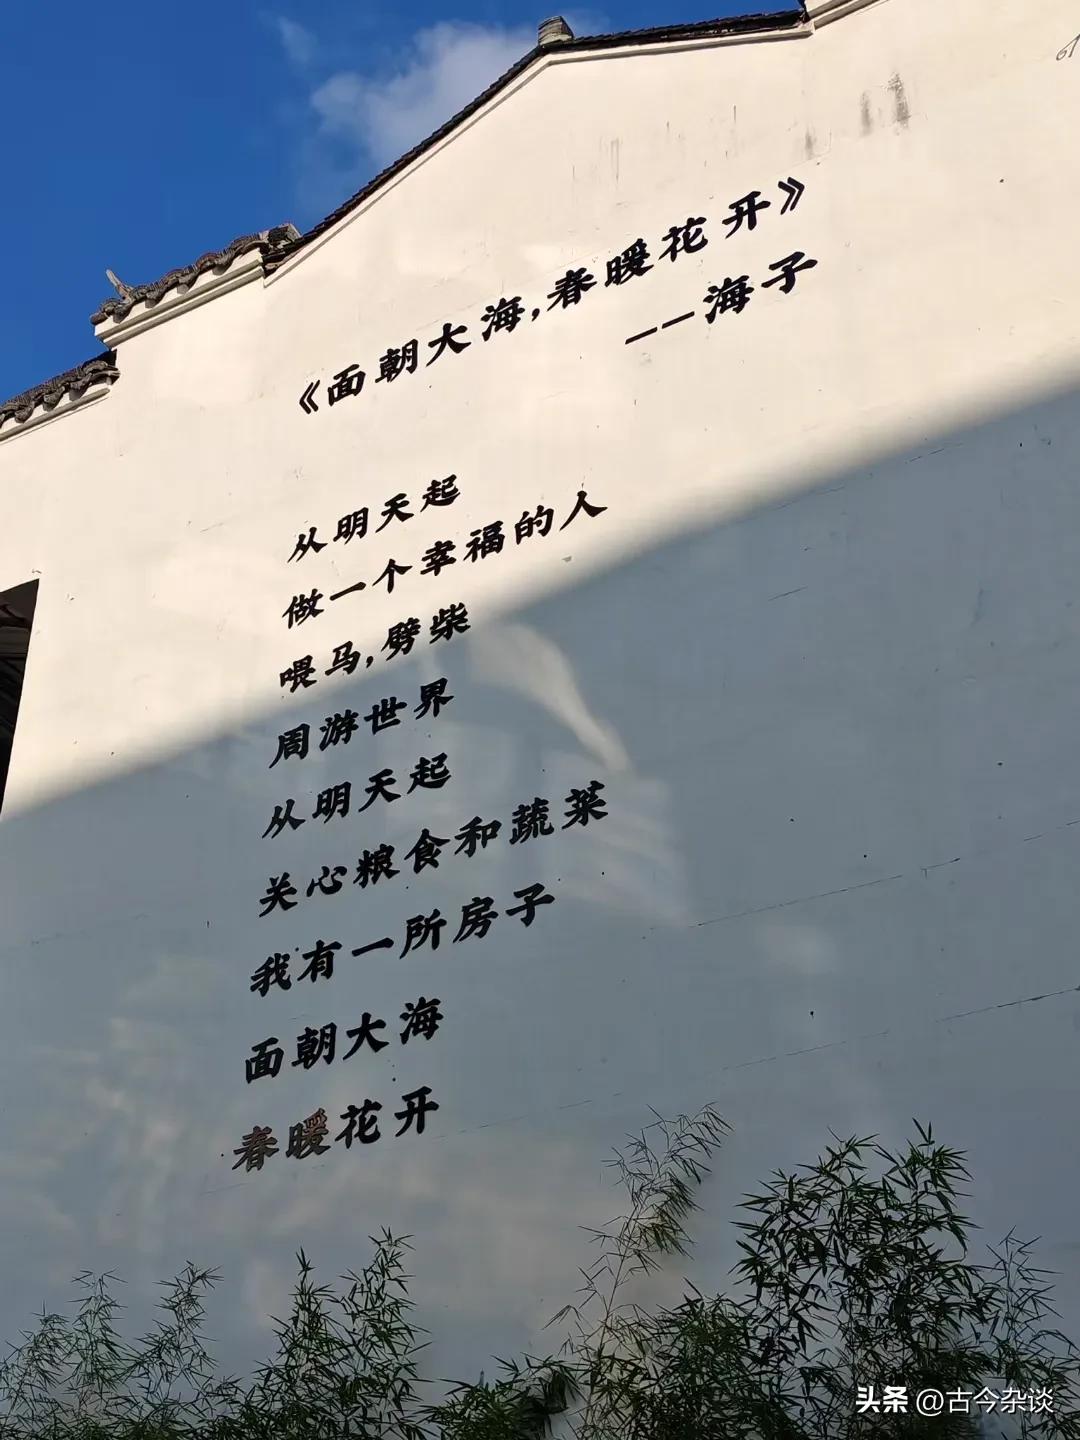 《面朝大海,春暖花开》
——海子
从明天起
做一个幸福的人
喂马,劈柴
周游世界
从明天起
关心粮食和蔬菜
我有一所房子
面朝大海
春暖花开
头条 @古今杂谈